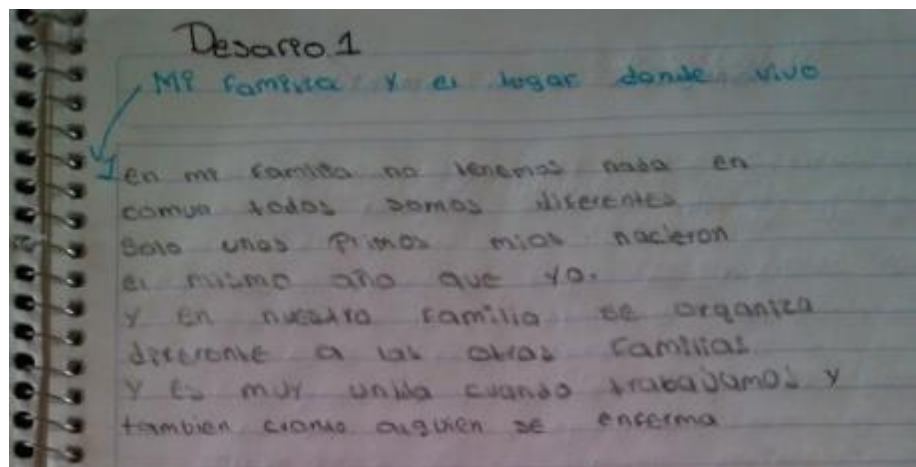 Desarro 1
Mi familia y el lugar donde vivo
1 en mi familia no tenemos nada en
comun todos somos diferentes
Solo unos Primos mios nacieron
el mismo año que yo.
y en nuestra familia se organiza
diferente a las otras familias
y es muy unida cuando trabajamos y
tambien cuando alguien se enferma